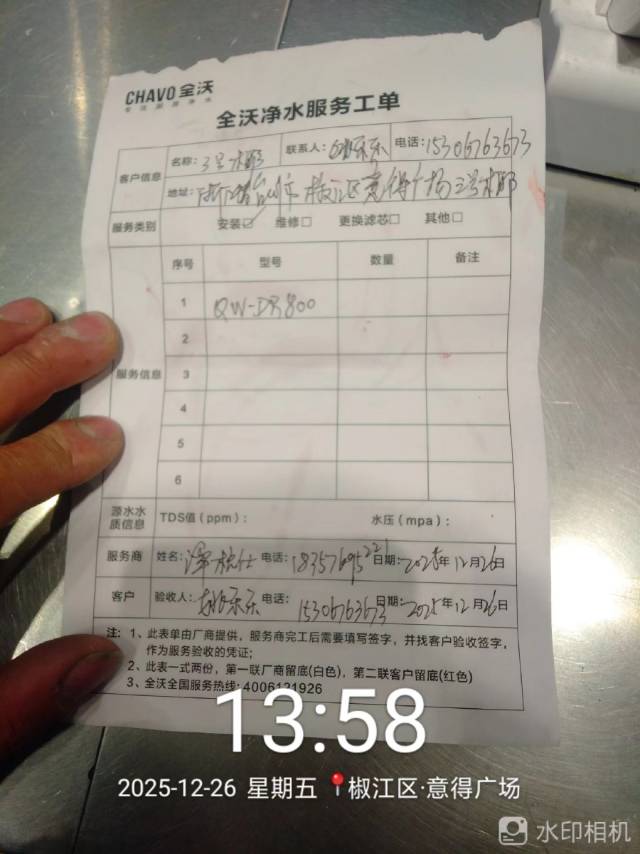 CHAVO 全沃
全沃净水服务工单
客户信息
名称：3号水郡 联系人： 乐乐 电话：15306763673
地址：浙江省台州市椒江区意得广场三号水郡
服务类别 安装☑ 维修□ 更换滤芯□ 其他□
服务信息
序号 型号 数量 备注
1 QW-DR800
2
3
4
5
6
源水水质信息 TDS值（ppm）： 水压（mpa）：
服务商 姓名： 电话：1835769522 日期：2025年12月26日
客户 验收人： 乐乐 电话：15306763673 日期：2025年12月26日
注：1、此表单由厂商提供，服务商完工后需要填写签字，并找客户验收签字，
作为服务验收的凭证；
2、此表一式两份，第一联厂商留底(白色)，第二联客户留底(红色)
3、全沃全国服务热线：4006121926
13:58
2025-12-26 星期五 椒江区·意得广场
水印相机